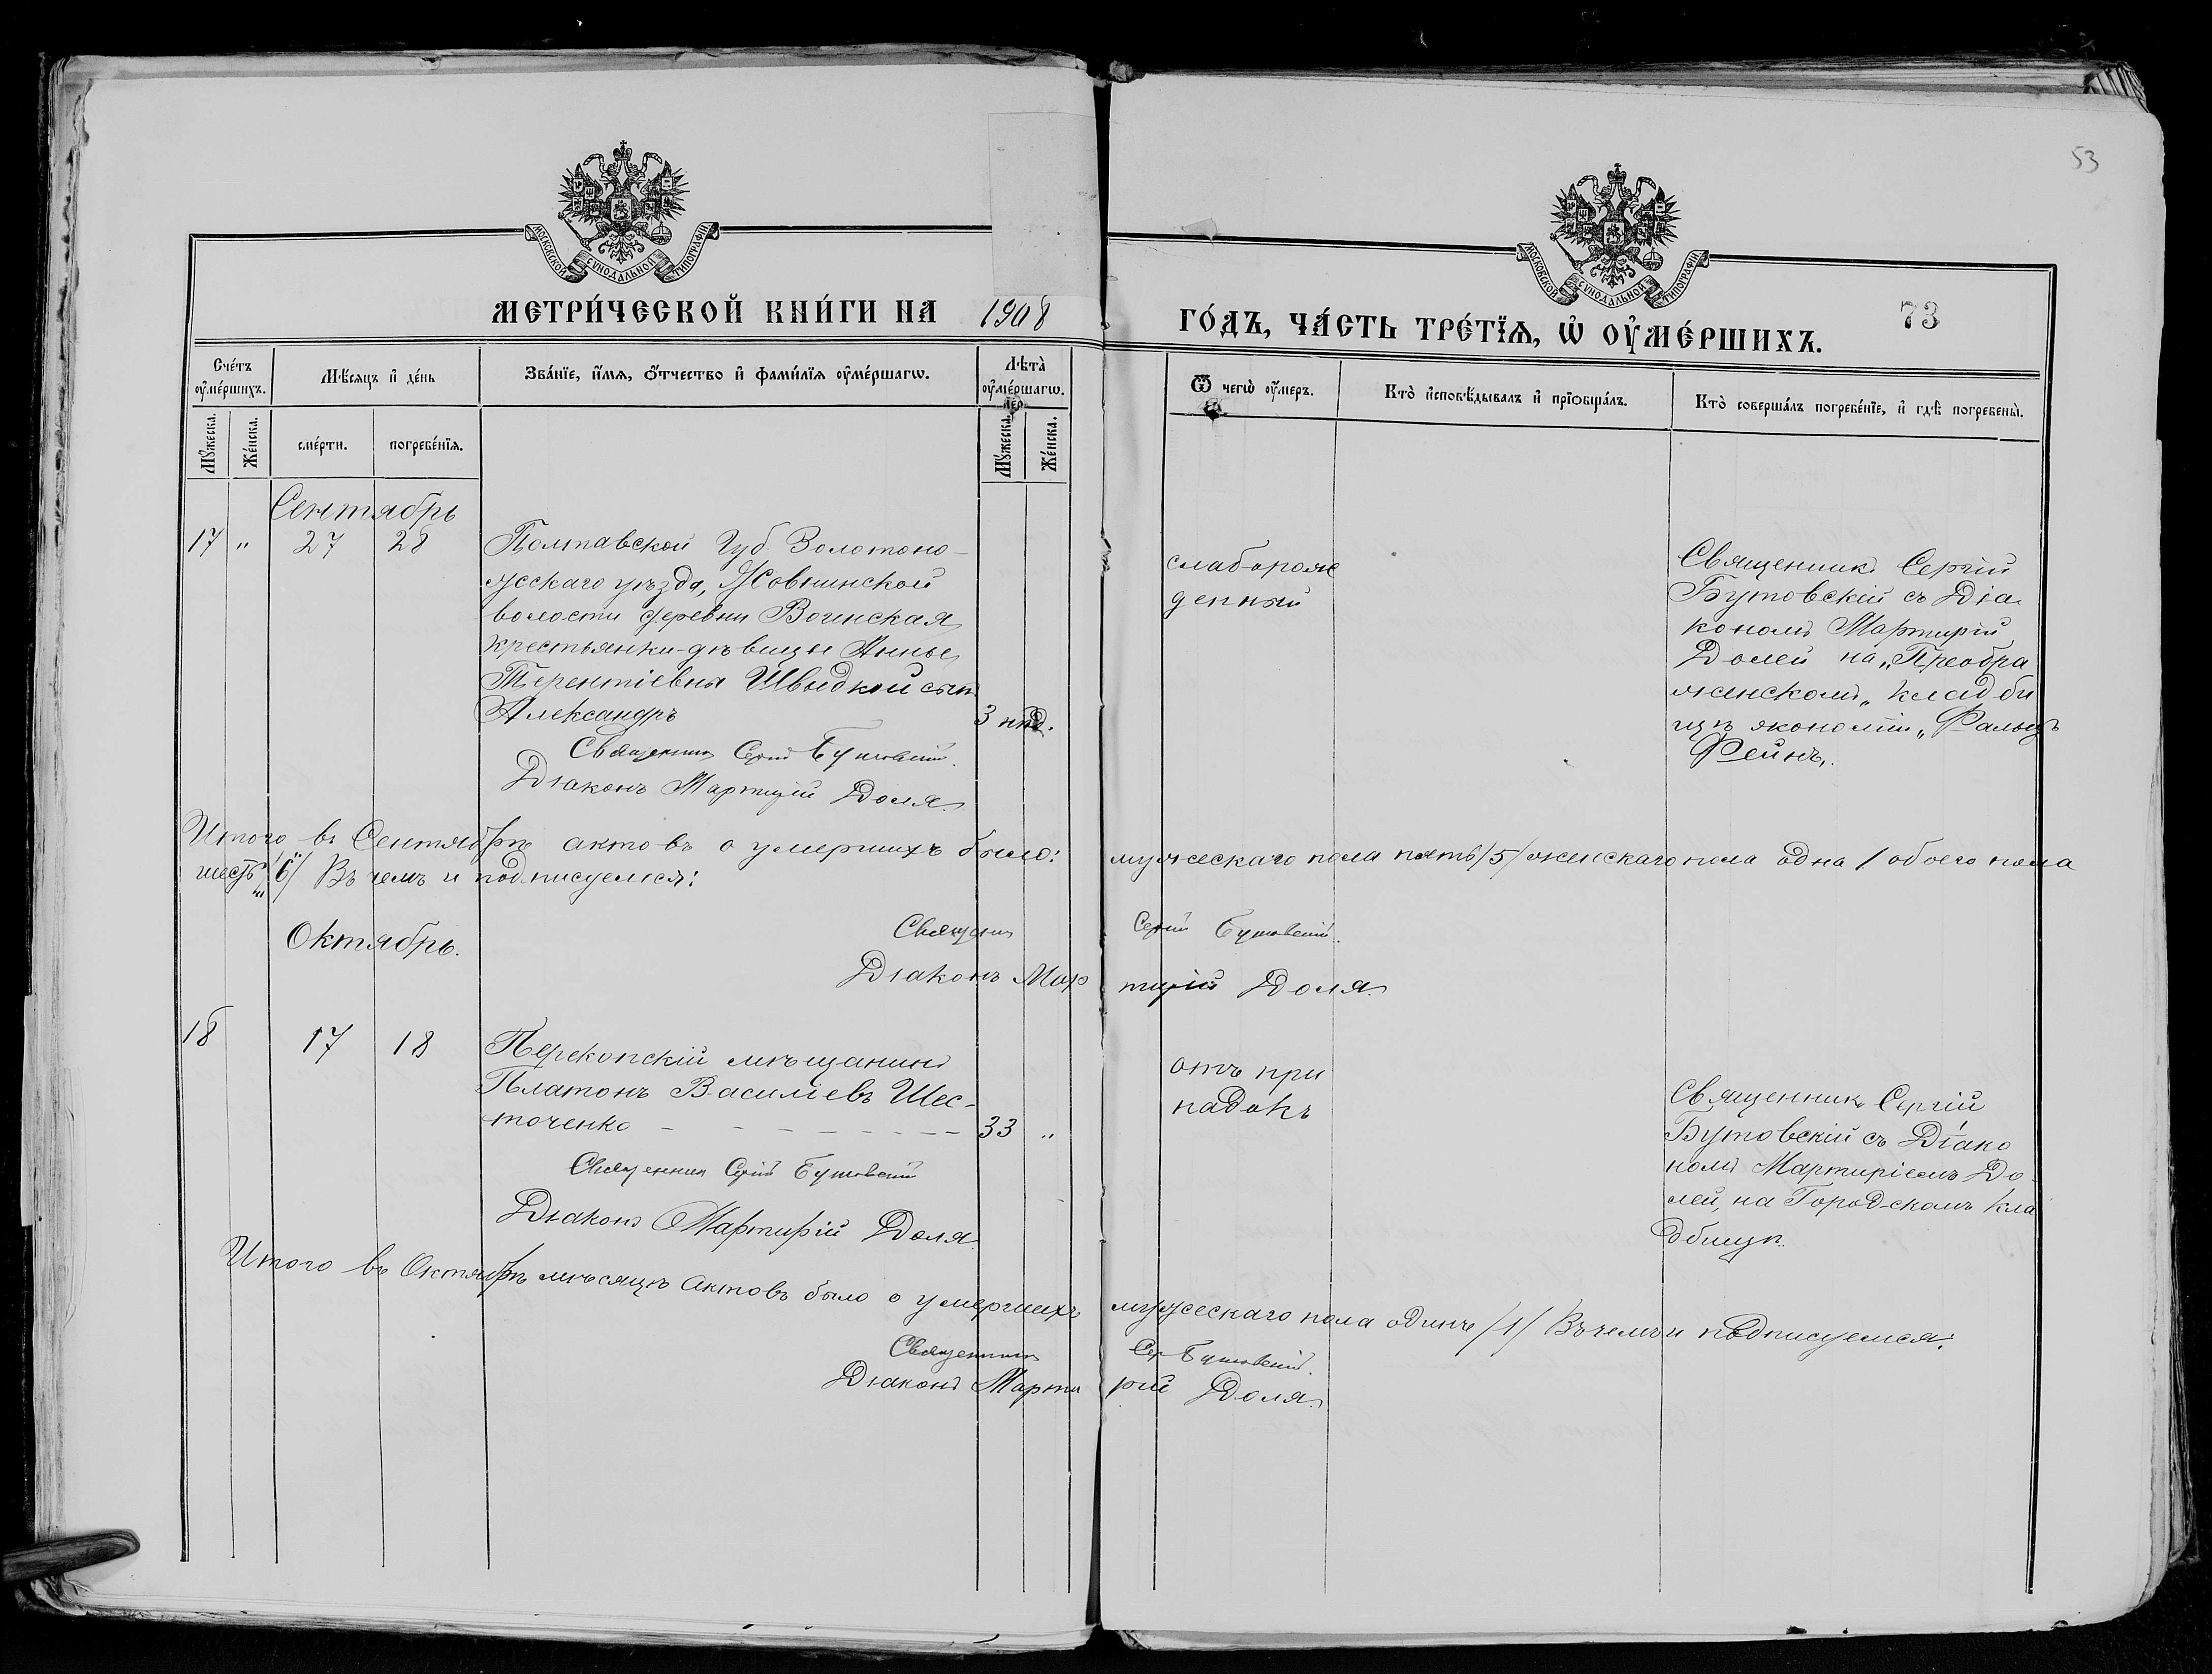 53
МОСКОВСКОЙ СУНОДАЛЬНОЙ ТИПОГРАФІИ
МОСКОВСКОЙ СУНОДАЛЬНОЙ ТИПОГРАФІИ
МЕТРИ́ЧЕСКОЙ КНИ́ГИ НА 1908
ГО́ДЪ, ЧА́СТЬ ТРЕ́ТЇѦ, Ѡ ОУ҆МЕ́РШИХЪ.
73
Сче́тъ оу҆ме́ршихъ.
Мѣ́сяцъ и҆ де́нь
Зва́нїе, и҆́мѧ, ѻ҆́тчество и҆ фами́лїѧ оу҆ме́ршагѡ.
Лѣ́та оу҆ме́ршагѡ.
Ѿ чегѡ̀ оу҆́меръ.
Кто̀ и҆сповѣ́дывалъ и҆ прїѡбща́лъ.
Кто̀ соверша́лъ погребе́нїе, и҆ гдѣ̀ погребены̀.
Мꙋ́жеска.
Же́нска.
сме́рти.
погребе́нїѧ.
Мꙋ́жеска.
Же́нска.
Сентябрь
17 " 27 28
Полтавской Губ. Золотоно-
шскаго уѣзда, Жовнинской
волости деревни Воинская
крестьянки-дѣвицы Анны
Терентіевна Швыдкой сын
Александръ 3 нед.
Священник Сергій Бутовскій.
Діаконъ Мартирій Доля
слаборож
денный
Священникъ Сергій
Бутовскій съ Діа
кономъ Мартирій
Долей на „Преобра
женскомъ„ кладби
щѣ экономіи „Фальцъ
Фейнъ„.
Итого въ Сентябрѣ актовъ о умершихъ было: мужескаго пола пять /5/ женскаго пола одна 1 обоего пола
шесть /6/ Въ чемъ и подписуемся:
Священник Сергій Бутовскій.
Діаконъ Мартирій Доля
Октябрь.
18 17 18
Перекопскій мѣщанинъ
Платонъ Василіевъ Шес-
точенко 33 "
Священник Сергій Бутовскій
Діаконъ Мартирій Доля
отъ при
падокъ
Священникъ Сергій
Бутовскій съ Діако
номъ Мартиріемъ До
лей, на Городскомъ кла
дбищѣ.
Итого въ Октябрѣ мѣсяцѣ актовъ было о умершихъ мужескаго пола одинъ /1/ Въ чемъ и подписуемся:
Священник Сер Бутовскій.
Діаконъ Мартирій Доля